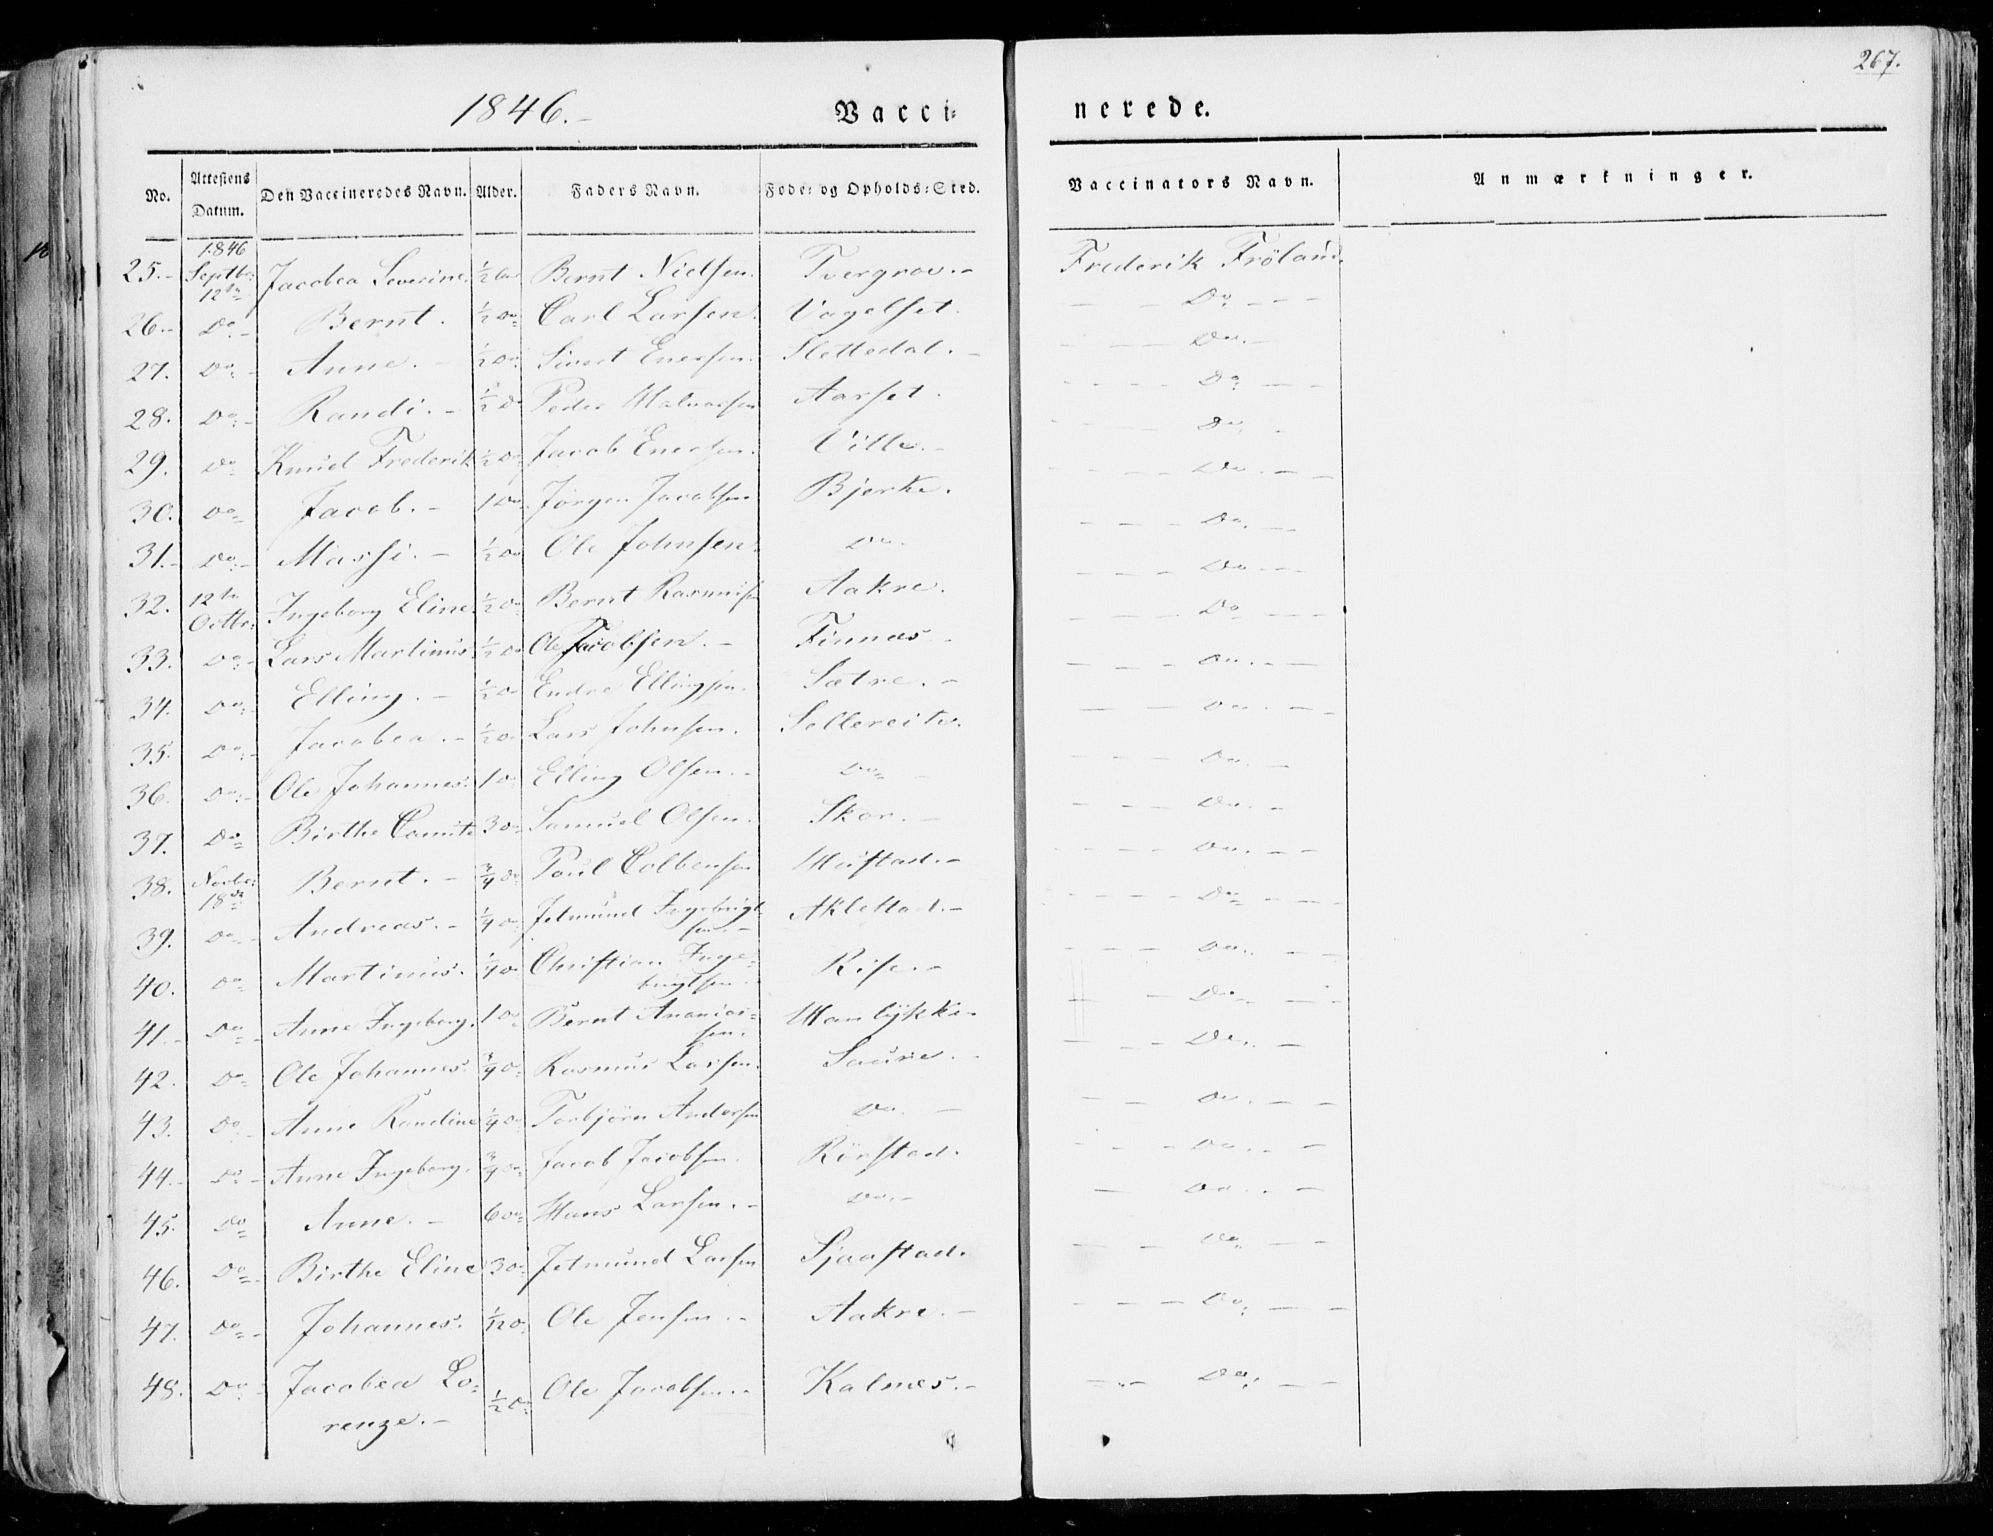 267.
1846.- Vacci- nerede.
No. Attestens Datum. Den Vaccineredes Navn. Alder. Faders Navn. Føde- og Opholds-Sted. Vaccinators Navn. Anmærkninger.
1846
25.- Septbr: 12te Jacobea Severine. 1/2 Bernt Nielsen. Tvergrov.- Frederik Fröland.
26.- Do.- Bernt. 1/2 Do: Carl Larsen. Vagelset. — — Do. — — —
27. Do:- Anne. - 1/2 Do: Sivert Enersen. Slettedal. - — — Do. —
28. Do:- Randi. - 1/2 Do Peder Halvorsen Aarset. — — — Do: — —
29. Do Knud Frederik 1/2 Do Jacob Enersen. Ville. - — — Do. -
30. Do Jacob. - 1 Do. Jørgen Jacobsen Bjerke. — — — Do. — —
31.- Do:- Massi. - 1/2 Do Ole Johnsen. Do. — — — Do. — —
32. 12te Octbr: Ingeborg Eline 1/2 Do Bernt Rasmusen Aakre. — — — Do — — —
33. Do:- Lars Martinus 1/2 Do Ole Jacobsen. - Finnes. - — — — Do — — —
34. Do: Elling. - 1/2 Do Endre Ellingsen. Sætre. - — — — Do. — —
35. Do:- Jacobea. - 1/2 Do Lars Johnsen. Sollereite. — — — Do. — — —
36. Do:- Ole Johannes. 1 Do: Elling Olsen. - Do — — — Do. — —
37. Do Birthe 3 Do: Samuel Olsen. Skor. - — — — Do. — —
38. Novbr: 18de Bernt. - 3/4 Do: Poul Colbensen Mustad.- — — — Do. — —
39. Do.- Andreas. - 1/4 Do Jetmund Ingebrigt-
sen. - Aklestad.- — — — Do — — —
40. Do Martinus. 1/4 Do Christian Inge-
brigtsen. Rise. - — — — Do. — —
41.- Do Anne Ingeborg. 1 Do Bernt Ananias-
sen. Hanlykke.- — — Do — —
42. Do Ole Johannes. 3/4 Do: Rasmus Larsen. Saure. - — — — Do. —
43. Do.- Anne Randine 1/4 Do: Torbjørn Andersen Do. - — — — Do. — — —
44.- Do - Anne Ingeborg. 3/4 Do: Jacob Jacobsen. Rörstad. — — — Do. — —
45. Do Anne. - 6 Do Hans Larsen. - Do. - — Do. — —
46. Do - Birthe Eline 3 Do: Jetmund Larsen Sjaastad. — — — Do. — —
47. Do - Johannes. 1/2 Do: Ole Jensen. - Aakre. - — — — Do. — — —
48. Do - Jacobea Lo-
renze. - 1/2 Do: Ole Jacobsen. - Kalmes. - — — Do. — —